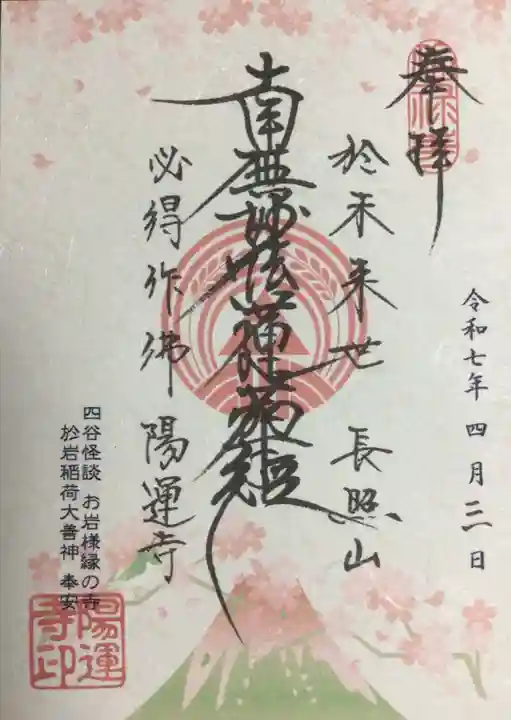 奉拝
令和七年四月三日
於未来世 長照山
南無妙法蓮華経
必得作佛 陽運寺
四谷怪談 お岩様縁の寺
於岩稲荷大善神 奉安
陽運寺印